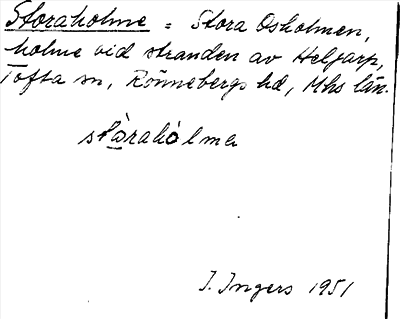 Storaholme = Stora Osholmen,
holme vid stranden av Heljarp,
Tofta sn, Rönnebergs hd, Mhs län.
stòrahólma
I. Ingers 1951